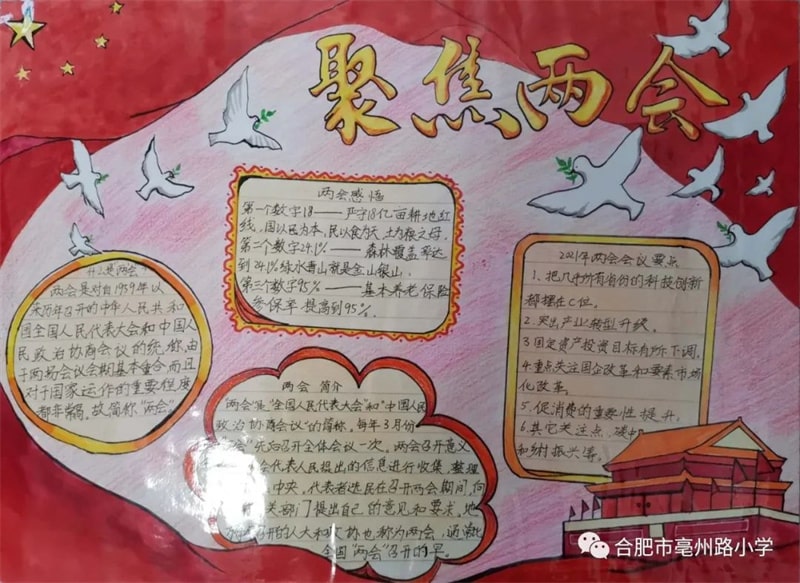 聚焦两会
两会感悟
第一个数字18——严守18亿亩耕地红
线。国以民为本,民以食为天,土为粮之母。
第二个数字24.1%——森林覆盖率达
到24.1%绿水青山就是金山银山。
第三个数字95%——基本养老保险
参保率提高到95%。
两会
两会是对自1959年以
来历年召开的中华人民共和
国全国人民代表大会和中国人
民政治协商会议的统称,由
于两场会议会期基本重合,而且
对于国家运作的重要程度
都非常高。故简称“两会”。
两会 简介
“两会”是“全国人民代表大会”和“中国人民
政治协商会议”的简称。每年3月份
先后召开全体会议一次。两会召开意义
代表人民提出的信息进行收集、整理
中央。代表着选民在召开两会期间,向
关部门提出自己的意见和要求。地
召开的人大和政协也称为两会,通常比
全国“两会”召开的早。
2021年两会会议要点
1、把几乎所有省份的科技创新
都摆在C位。
2、突出产业转型升级。
3、固定资产投资目标有所下调。
4、重点关注国企改革和要素市场
化改革。
5、促消费的重要性提升。
6、其它关注点、碳中
和乡村振兴等。
合肥市亳州路小学